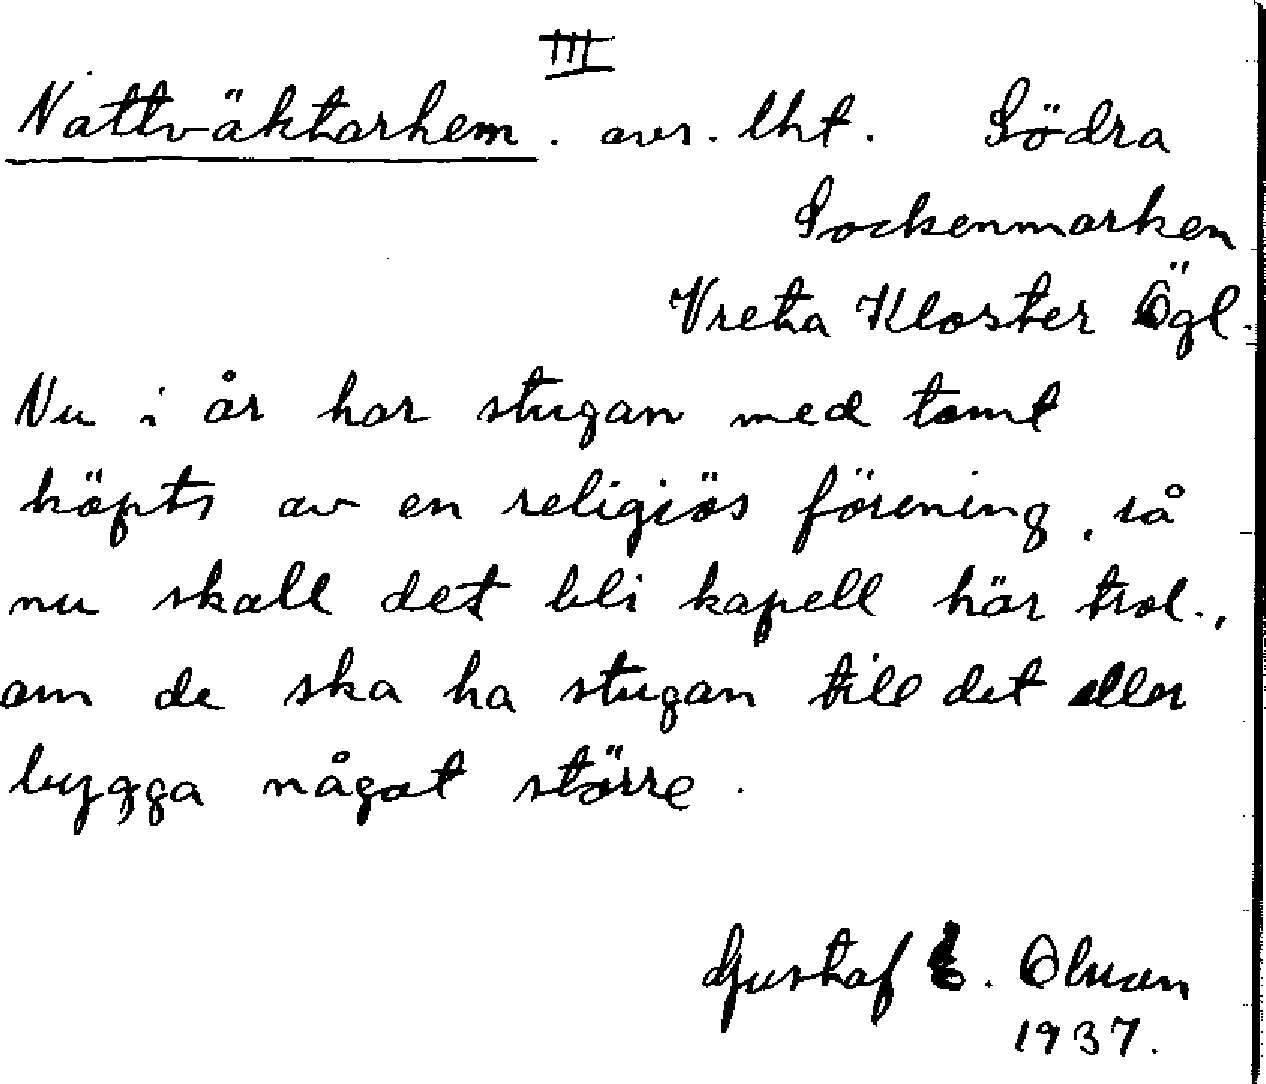 III
Nattväktarhem. avs. lht. Södra
Sockenmarken
Vreta Kloster Ögl.
Nu i år har stugan med tomt
köpts av en religiös förening, så
nu skall det bli kapell här trol.,
om de ska ha stugan till det eller
bygga något större.
Gustaf E. Olsson
1937.